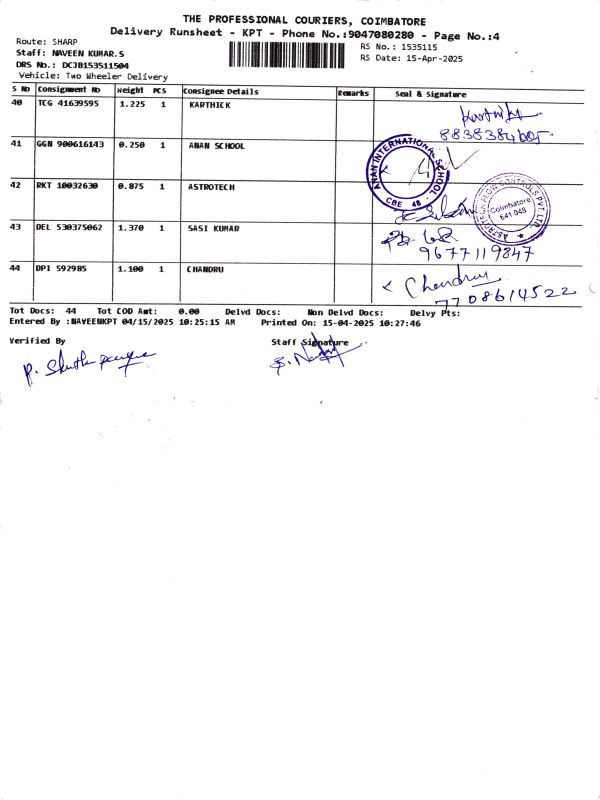 THE PROFESSIONAL COURIERS, COIMBATORE
Delivery Runsheet - KPT - Phone No.:9047080280 - Page No.:4
Route: SHARP
Staff: NAVEEN KUMAR.S
DRS No.: DCJB153511504
Vehicle: Two Wheeler Delivery
RS No.: 1535115
RS Date: 15-Apr-2025
S No Consignment No Weight PCS Consignee Details Remarks Seal & Signature
40 TCG 41639595 1.225 1 KARTHICK
8838384605
41 GGN 900616143 0.250 1 ANAN SCHOOL
ANAN INTERNATIONAL SCHOOL
CBE 48
42 RKT 10032630 0.875 1 ASTROTECH
Coimbatore
641 048
43 DEL 530375062 1.370 1 SASI KUMAR
9677119847
44 DPI 592985 1.100 1 CHANDRU
Chandru
7708614522
Tot Docs: 44 Tot COD Amt: 0.00 Delvd Docs: Non Delvd Docs: Delvy Pts:
Entered By :NAVEENKPT 04/15/2025 10:25:15 AM Printed On: 15-04-2025 10:27:46
Verified By
Staff Signature